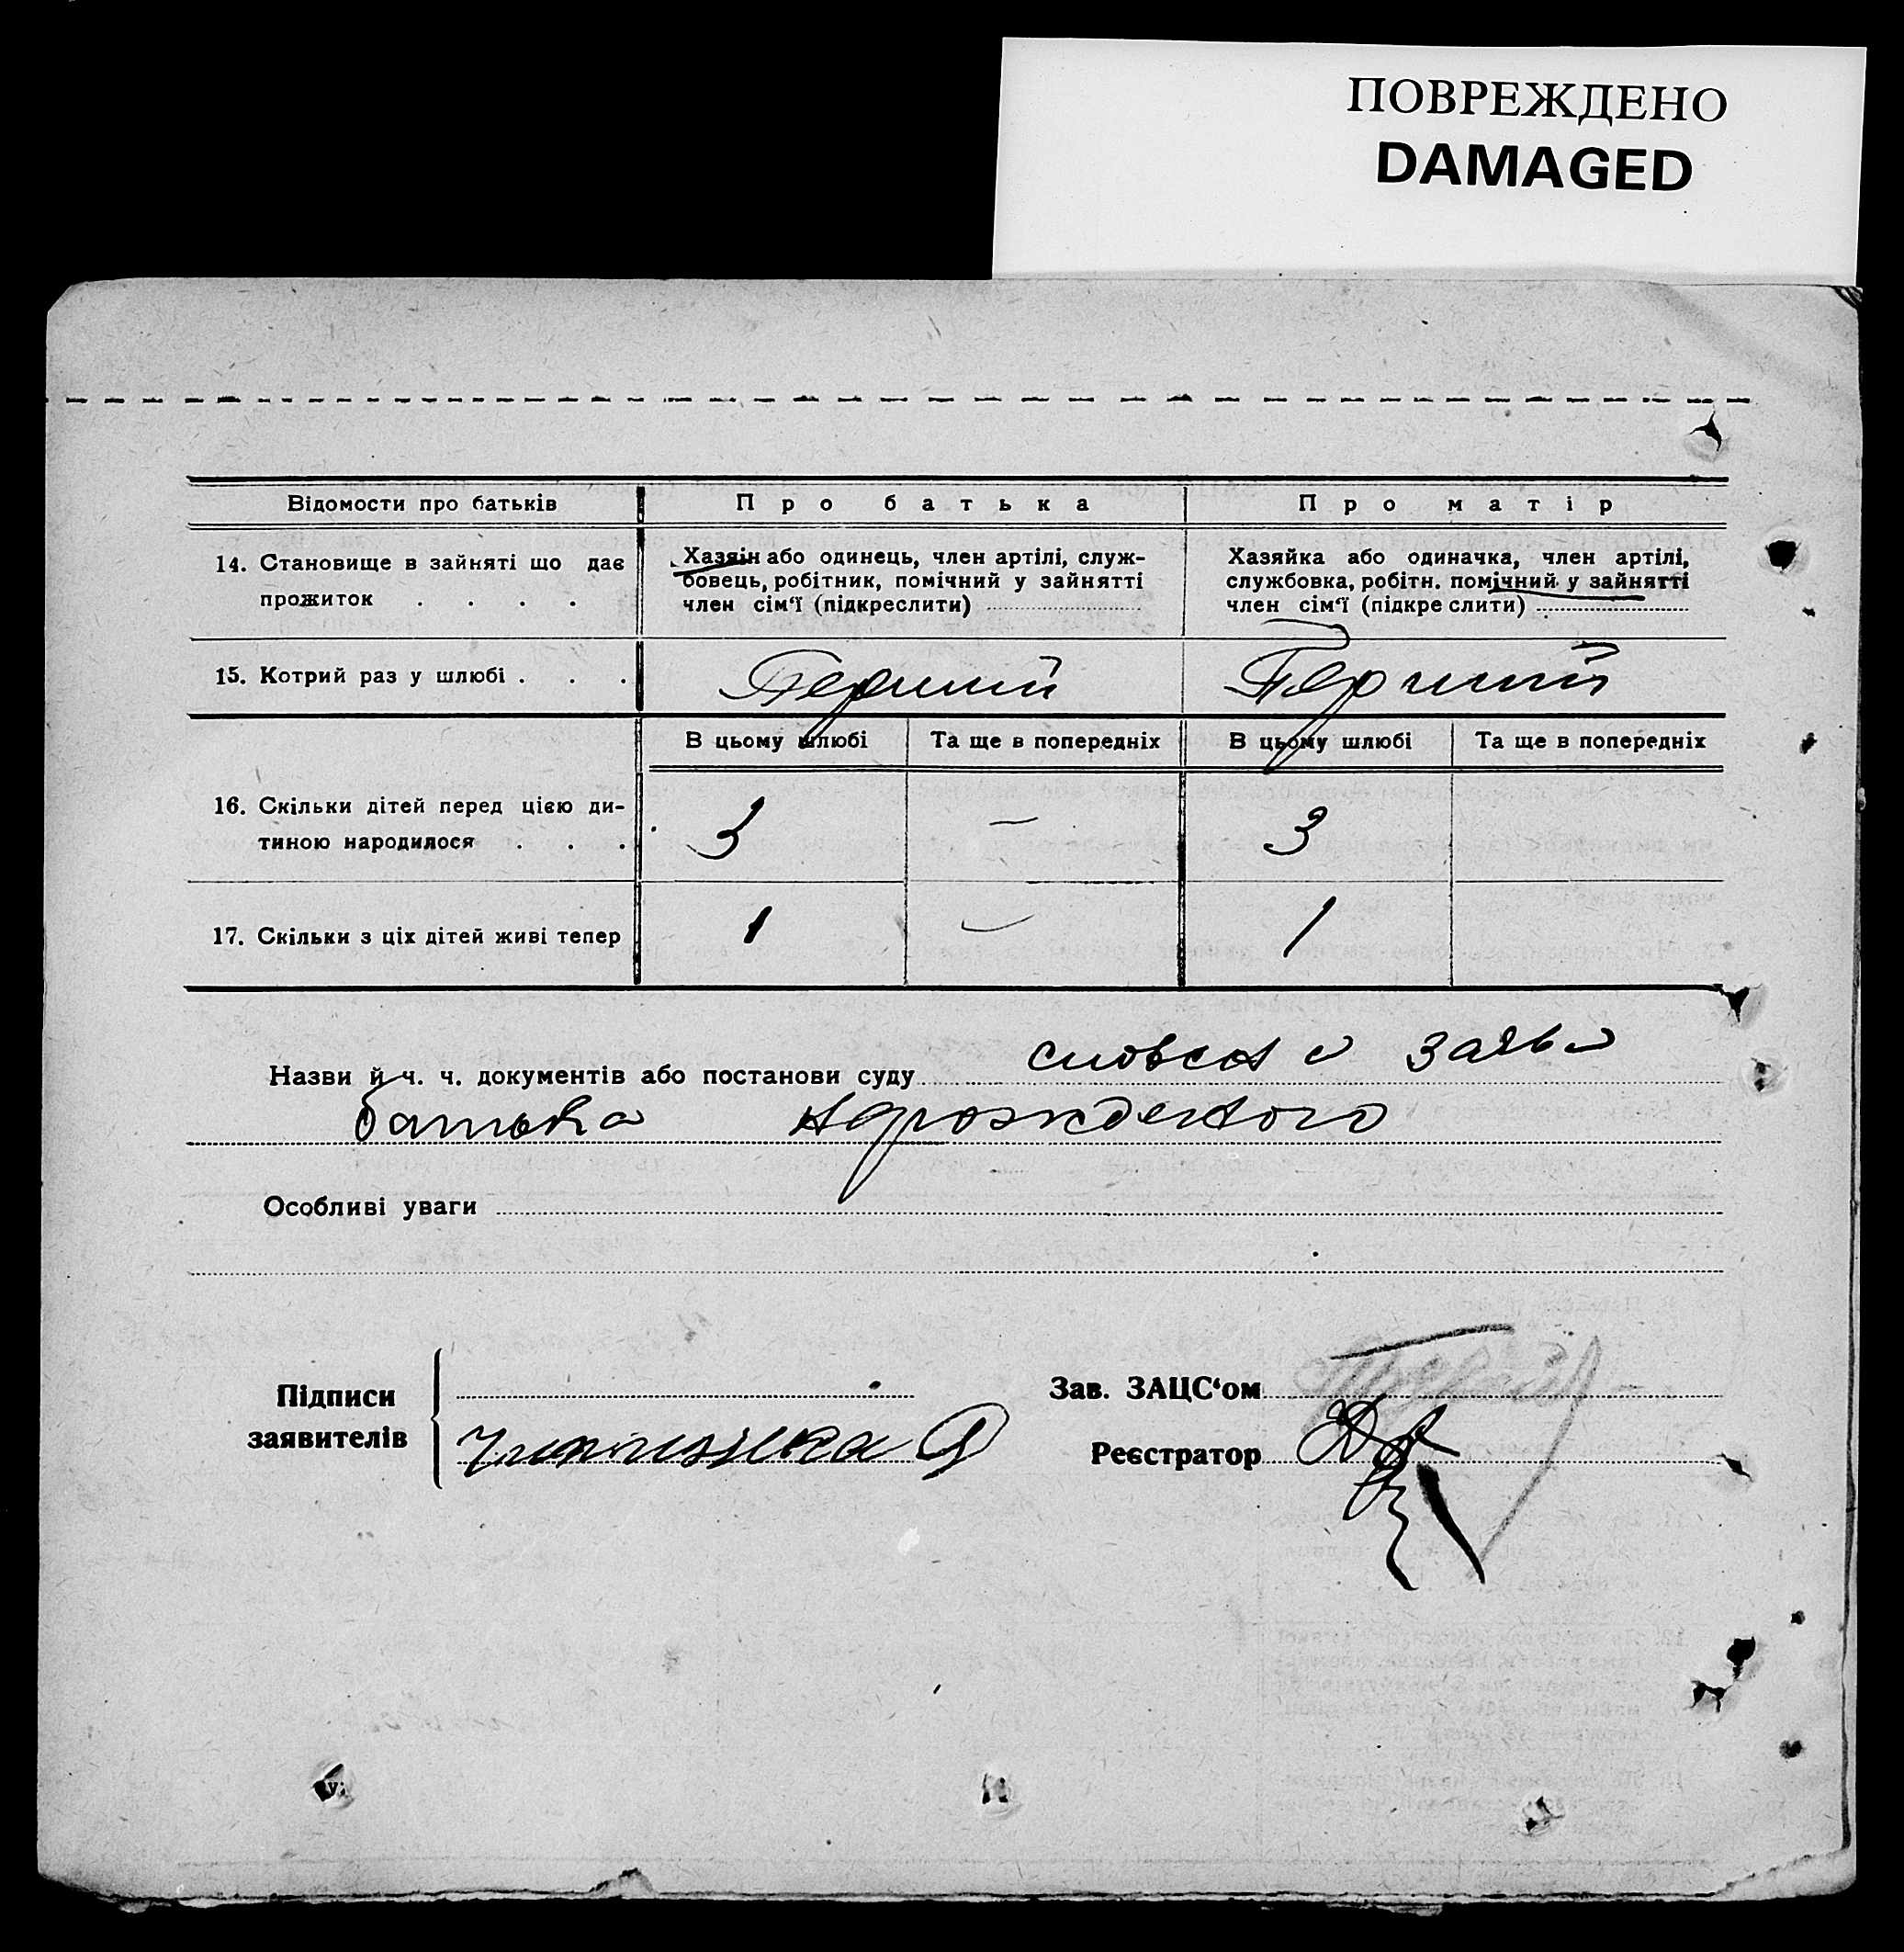 ПОВРЕЖДЕНО
DAMAGED
Відомости про батьків
Про батька
Про матір
14. Становище в зайняті що дає
прожиток . . . .
Хазяїн або одинець, член артілі, служ-
бовець, робітник, помічний у зайнятті
член сім‘ї (підкреслити)
Хазяйка або одиначка, член артілі,
службовка, робітн. помічний у зайнятті
член сім‘ї (підкреслити)
15. Котрий раз у шлюбі . . .
Перший
Перший
В цьому шлюбі
Та ще в попередніх
В цьому шлюбі
Та ще в попередніх
16. Скільки дітей перед цією ди-
тиною народилося . . .
3
—
3
17. Скільки з ціх дітей живі тепер
1
—
1
Назви й ч. ч. документів або постанови суду заява
батька
Особливі уваги
Підписи
заявителів
Зав. ЗАЦС‘ом
Реєстратор